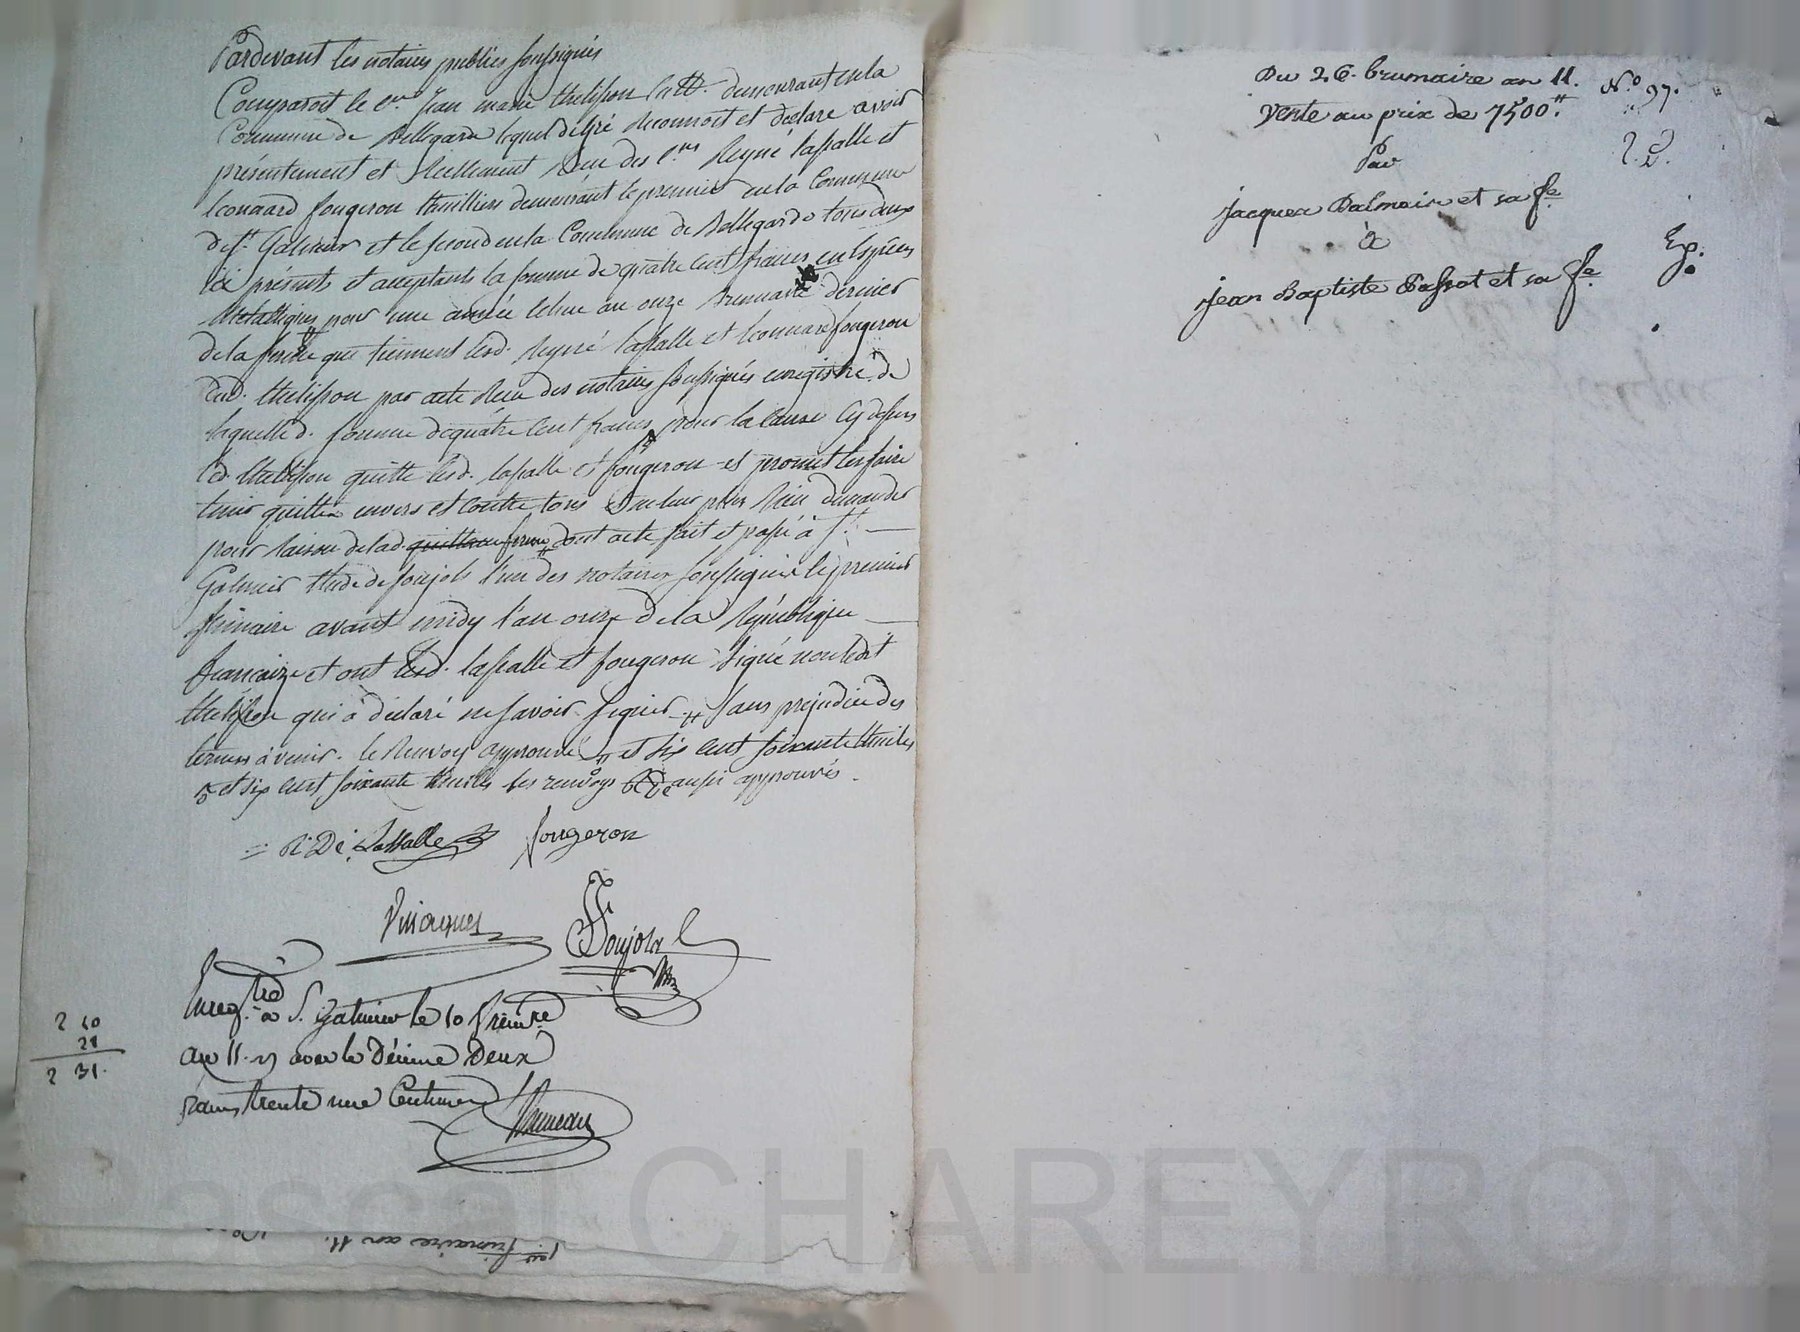 Pardevant les notaires publics soussignés
Comparoit le c.en Jean marie thelisson demeurant en la
Commune de Bellegarde lequel de gré Reconnoit et déclare avoir
présentement et Réellement Reçu des c.ens Reyné lassalle et
Leonard fougerou thuilliers demeurant le premier en la Commune
de s.t Galmier et le second en la Commune de Bellegarde tous deux
ici présents et acceptants la somme de quatre cent francs en Espèces
Métalliques pour une année échue au onze Brumaire dernier
de la ferme que tiennent lesd. Reyné lassalle et Leonard fougerou
dud. thelisson par acte Reçu des notaires soussignés enregistré de
laquelle d. somme de quatre cent francs pour la cause cy dessus
led. thelisson quitte lesd. lassalle et fougerou et promet les faire
tenir quittes envers et contre tous et ne leur plus Rien demander
pour raison de lad. ferme dont acte fait et passé à s.t
Galmier étude de Soujols l'un des notaires soussignés le premier
frimaire avant midy l'an onze de la République
francaize et ont lesd. lassalle et fougerou signé non ledit
thelisson qui a déclaré ne savoir signer # sans préjudice des
termes à venir. le Renvoy approuvé # et six cent soixante thuiles
et six cent soixante thuiles les renvoys aussi approuvés.
Lassalle fougeron
Soujols
Enreg.tré à S. galmier le 10 frim.re
an 11. avec le Décime Deux
francs trente une Centimes
2 10
21
2 31.
1er frimaire an 11.
Du 26. brumaire an 11. N.o 97.
Vente au prix de 7500.tt
Par
Jacques Dalmais et sa f.e
à
Jean Baptiste Passot et sa f.e
Ex.